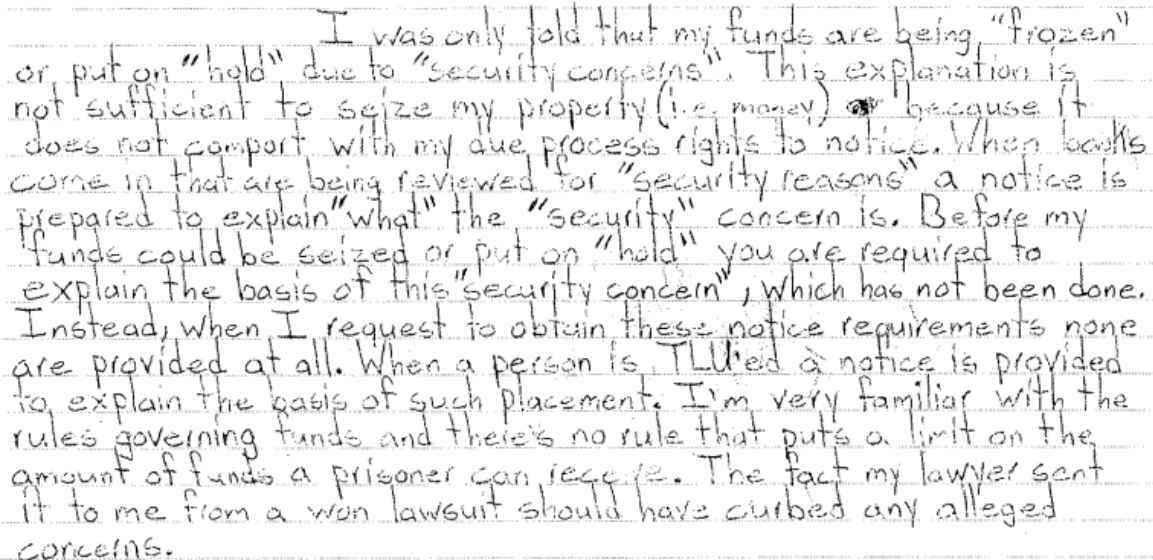 I was only told that my funds are being "frozen"
or put on "hold" due to "security concerns". This explanation is
not sufficient to seize my property (i.e. money) because it
does not comport with my due process rights to notice. When books
come in that are being reviewed for "security reasons" a notice is
prepared to explain "what" the "security" concern is. Before my
funds could be seized or put on "hold" you are required to
explain the basis of this "security concern", which has not been done.
Instead, when I request to obtain these notice requirements none
are provided at all. When a person is TLU'ed a notice is provided
to explain the basis of such placement. I'm very familiar with the
rules governing funds and there's no rule that puts a limit on the
amount of funds a prisoner can receive. The fact my lawyer sent
it to me from a won lawsuit should have curbed any alleged
concerns.